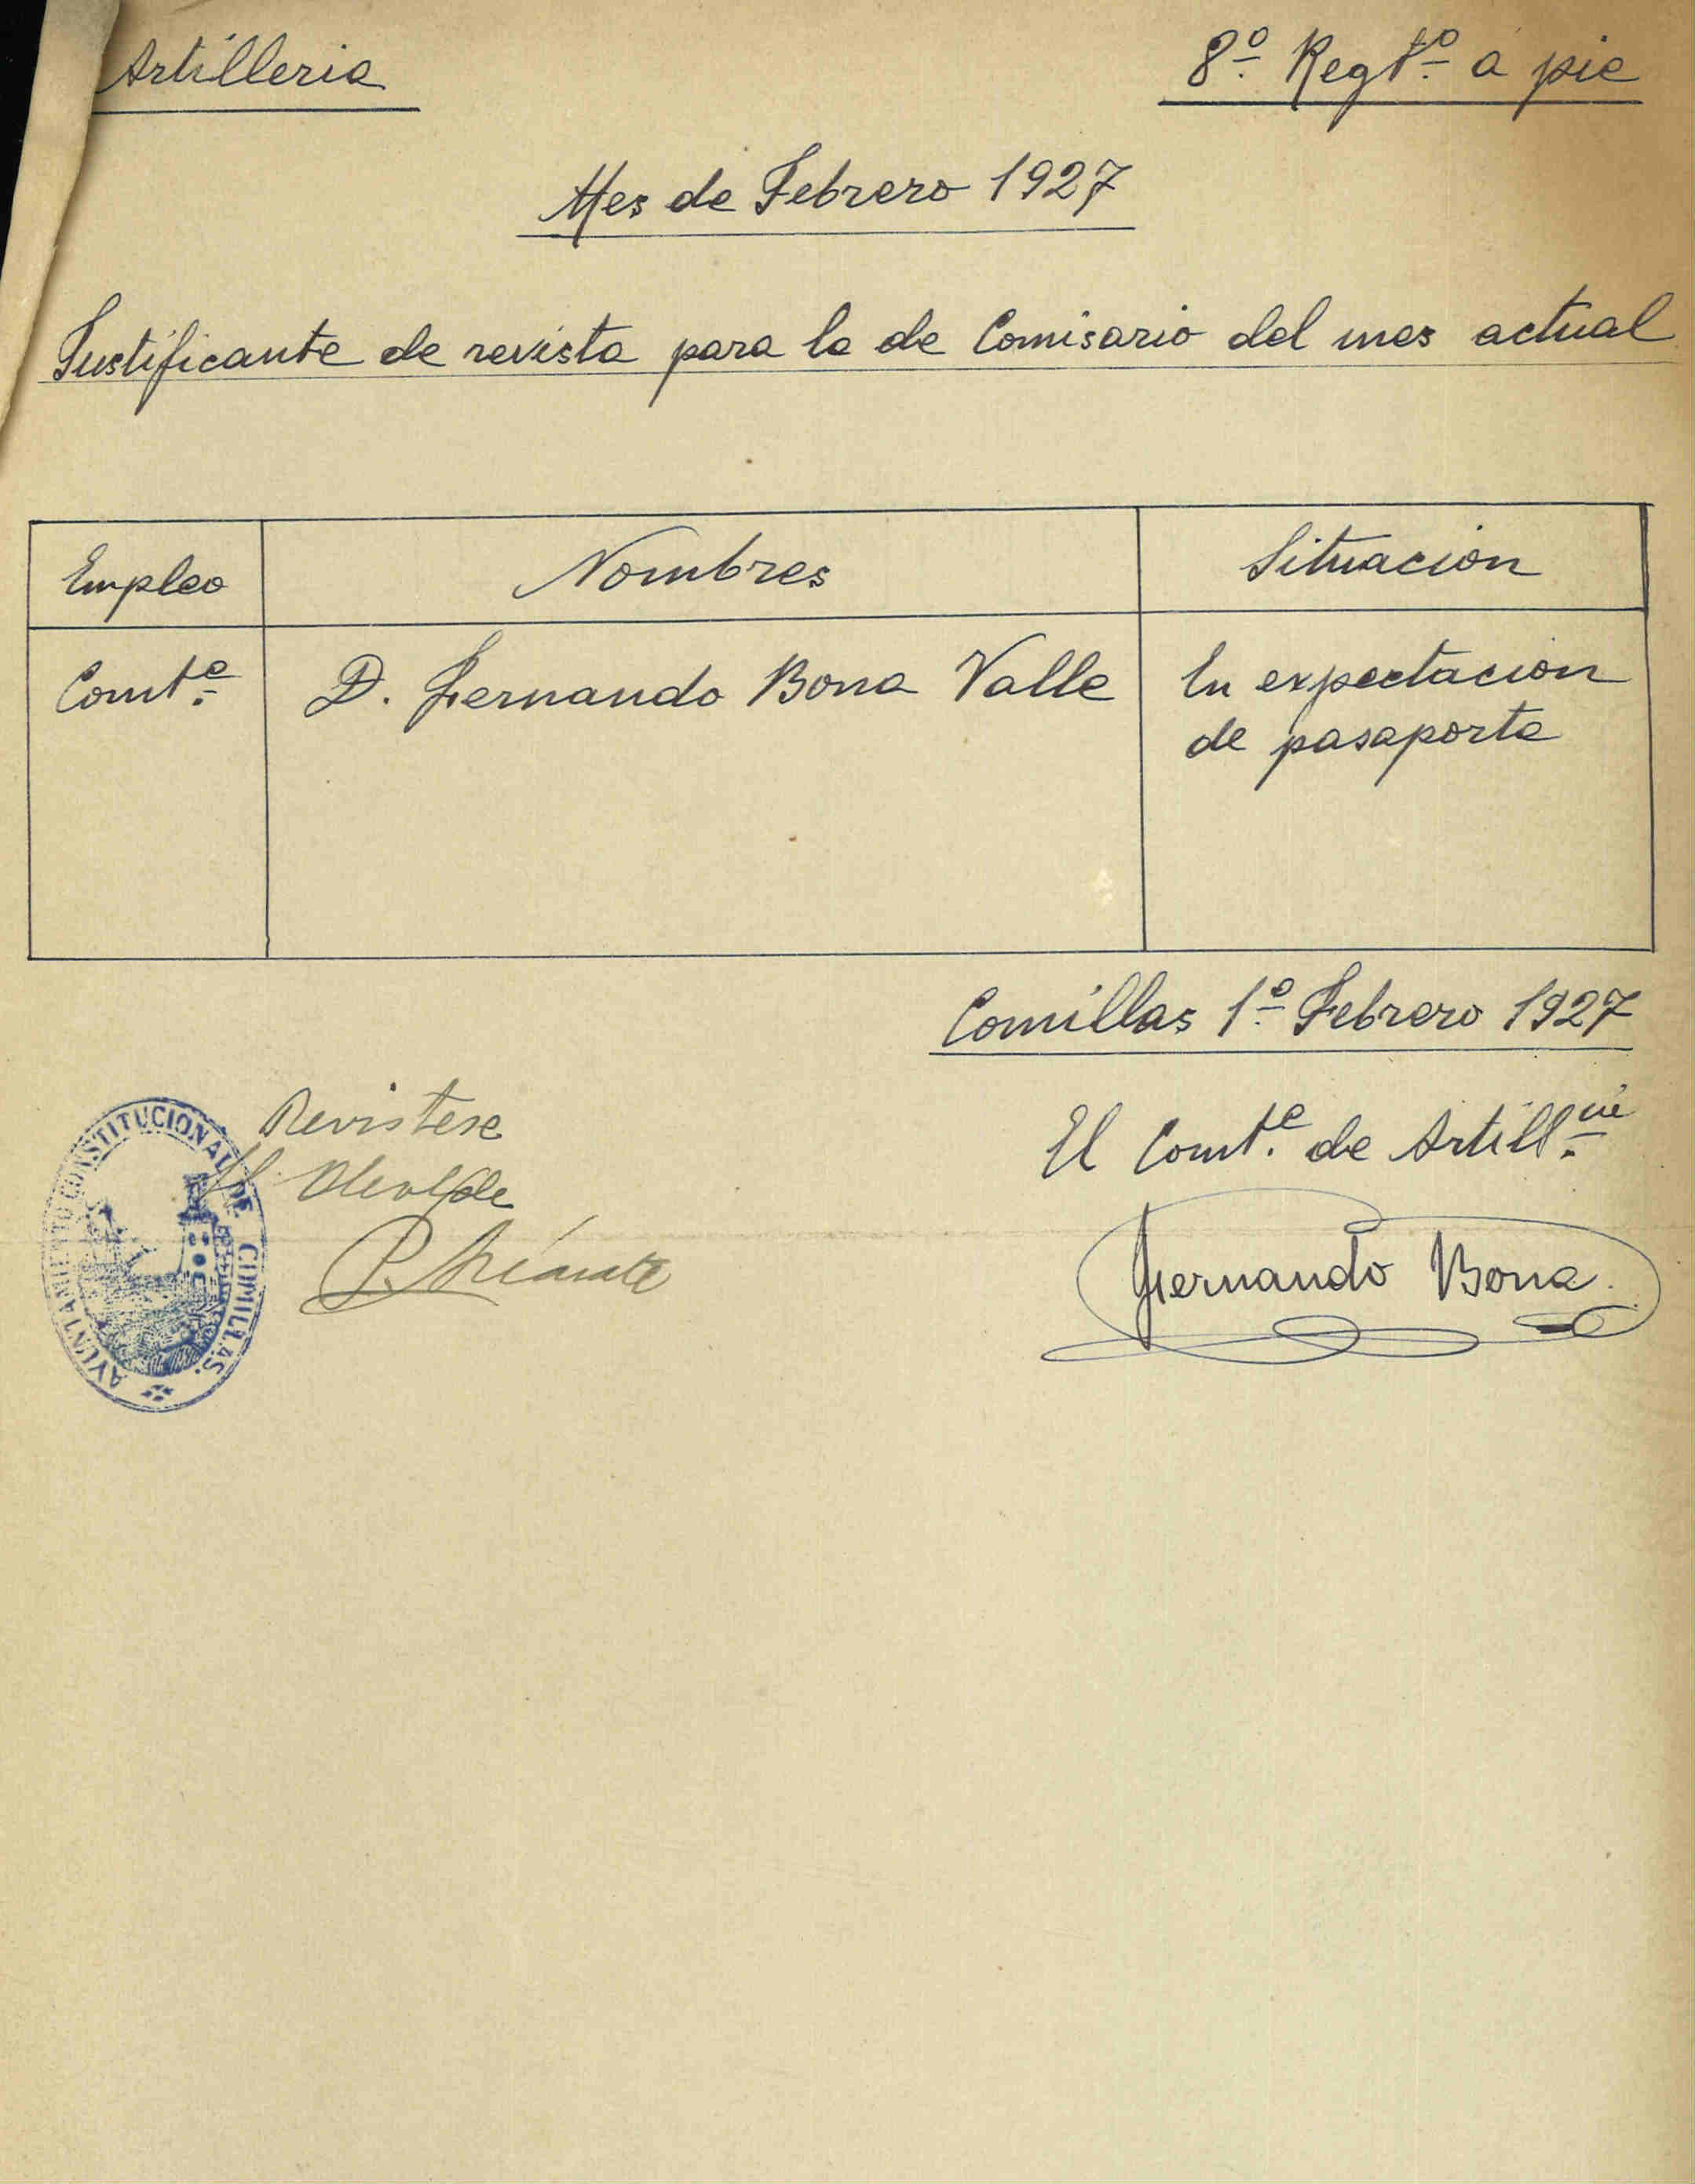 Artilleria
8º Regtº a pie
Mes de Febrero 1927
Justificante de revista para la de Comisario del mes actual
Empleo Nombres Situacion
Comte. D. Fernando Bona Valle En expectacion
de pasaporte
Comillas 1º Febrero 1927
Revistese
El Alcalde
El Comte. de Artillia
Fernando Bona
AYUNTAMIENTO CONSTITUCIONAL DE COMILLAS.